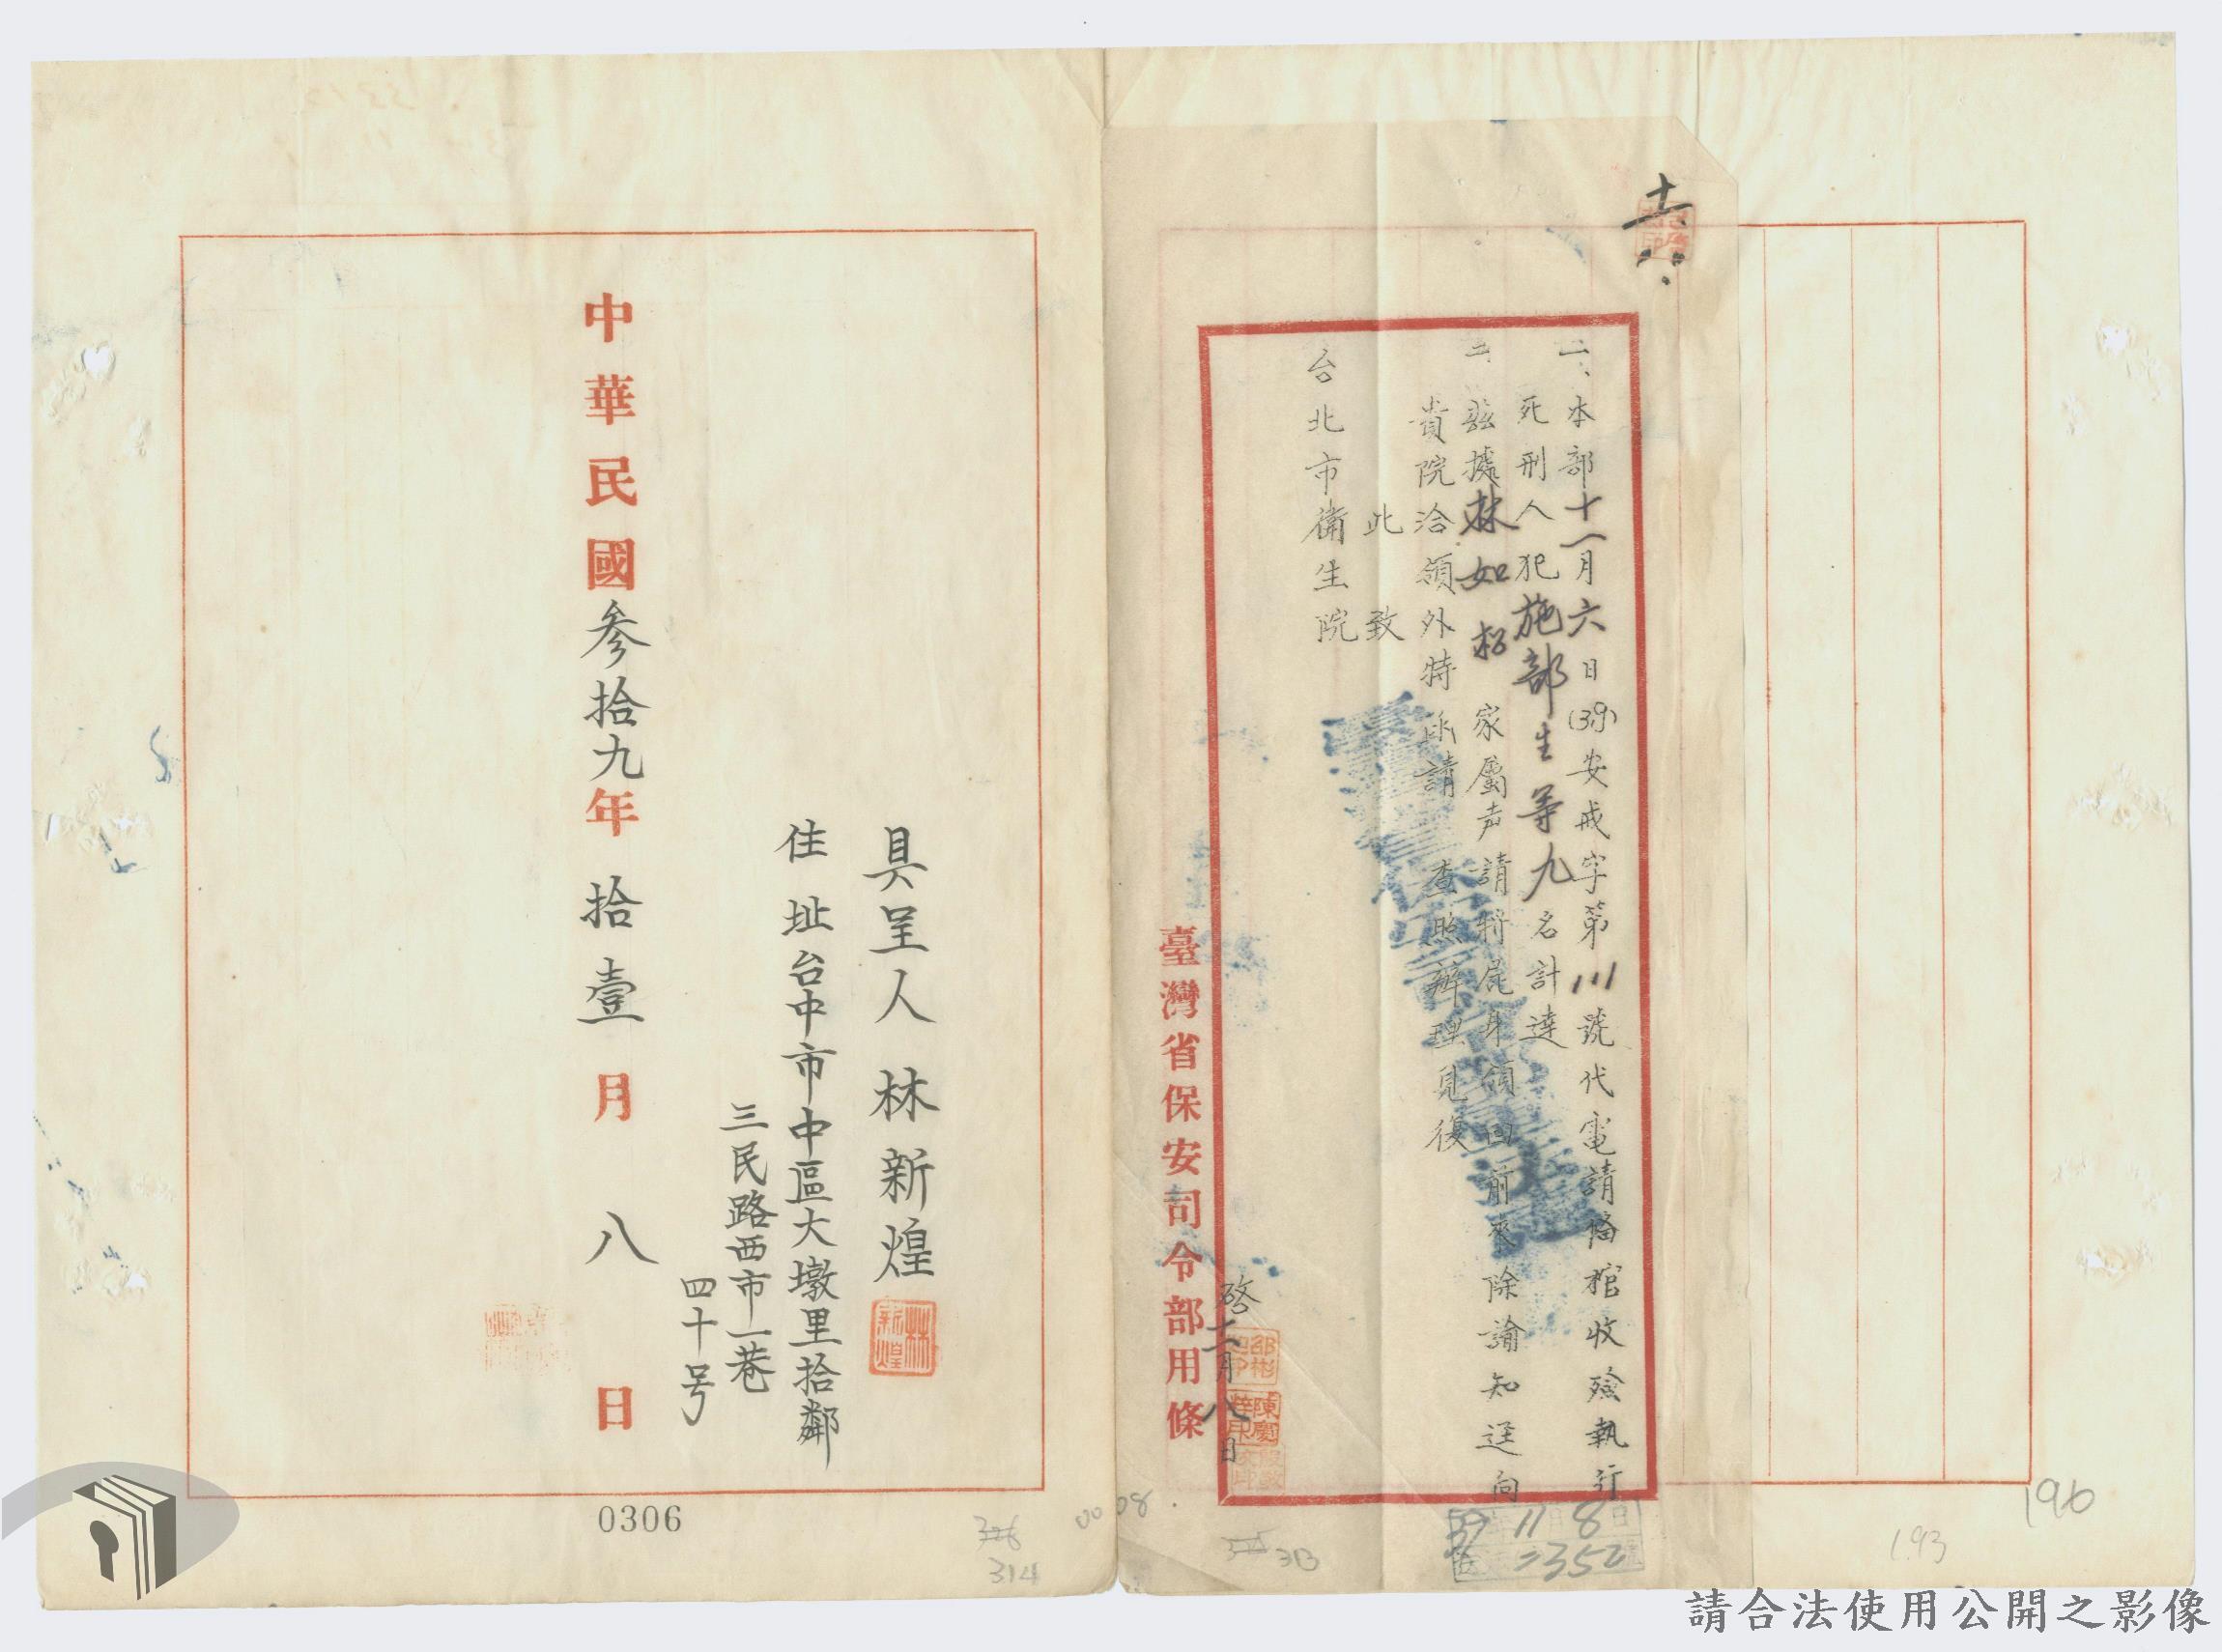 一、本部十一月六日(39)安戒字第111號代電請備棺收殮執行
死刑人犯施部生等九名計達
二、茲據林如松家屬声請將屍身領回前來除諭知逕向
貴院洽領外特函請查照辦理見復
此致
台北市衛生院
啓十一月八日
臺灣省保安司令部用條
具呈人林新煌
住址台中市中區大墩里拾鄰
三民路西市一巷
四十号
中華民國參拾九年拾壹月八日
0306
314
313
39 11 8
2352
193
196
請合法使用公開之影像